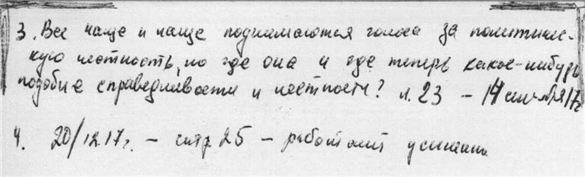 3. Все чаще и чаще поднимаются голоса за политичес-
кую честность, но где она и где теперь какое-нибудь
подобие справедливости и честности? л. 23 – 14
4. 20/12.17г. – стр 25 – работают